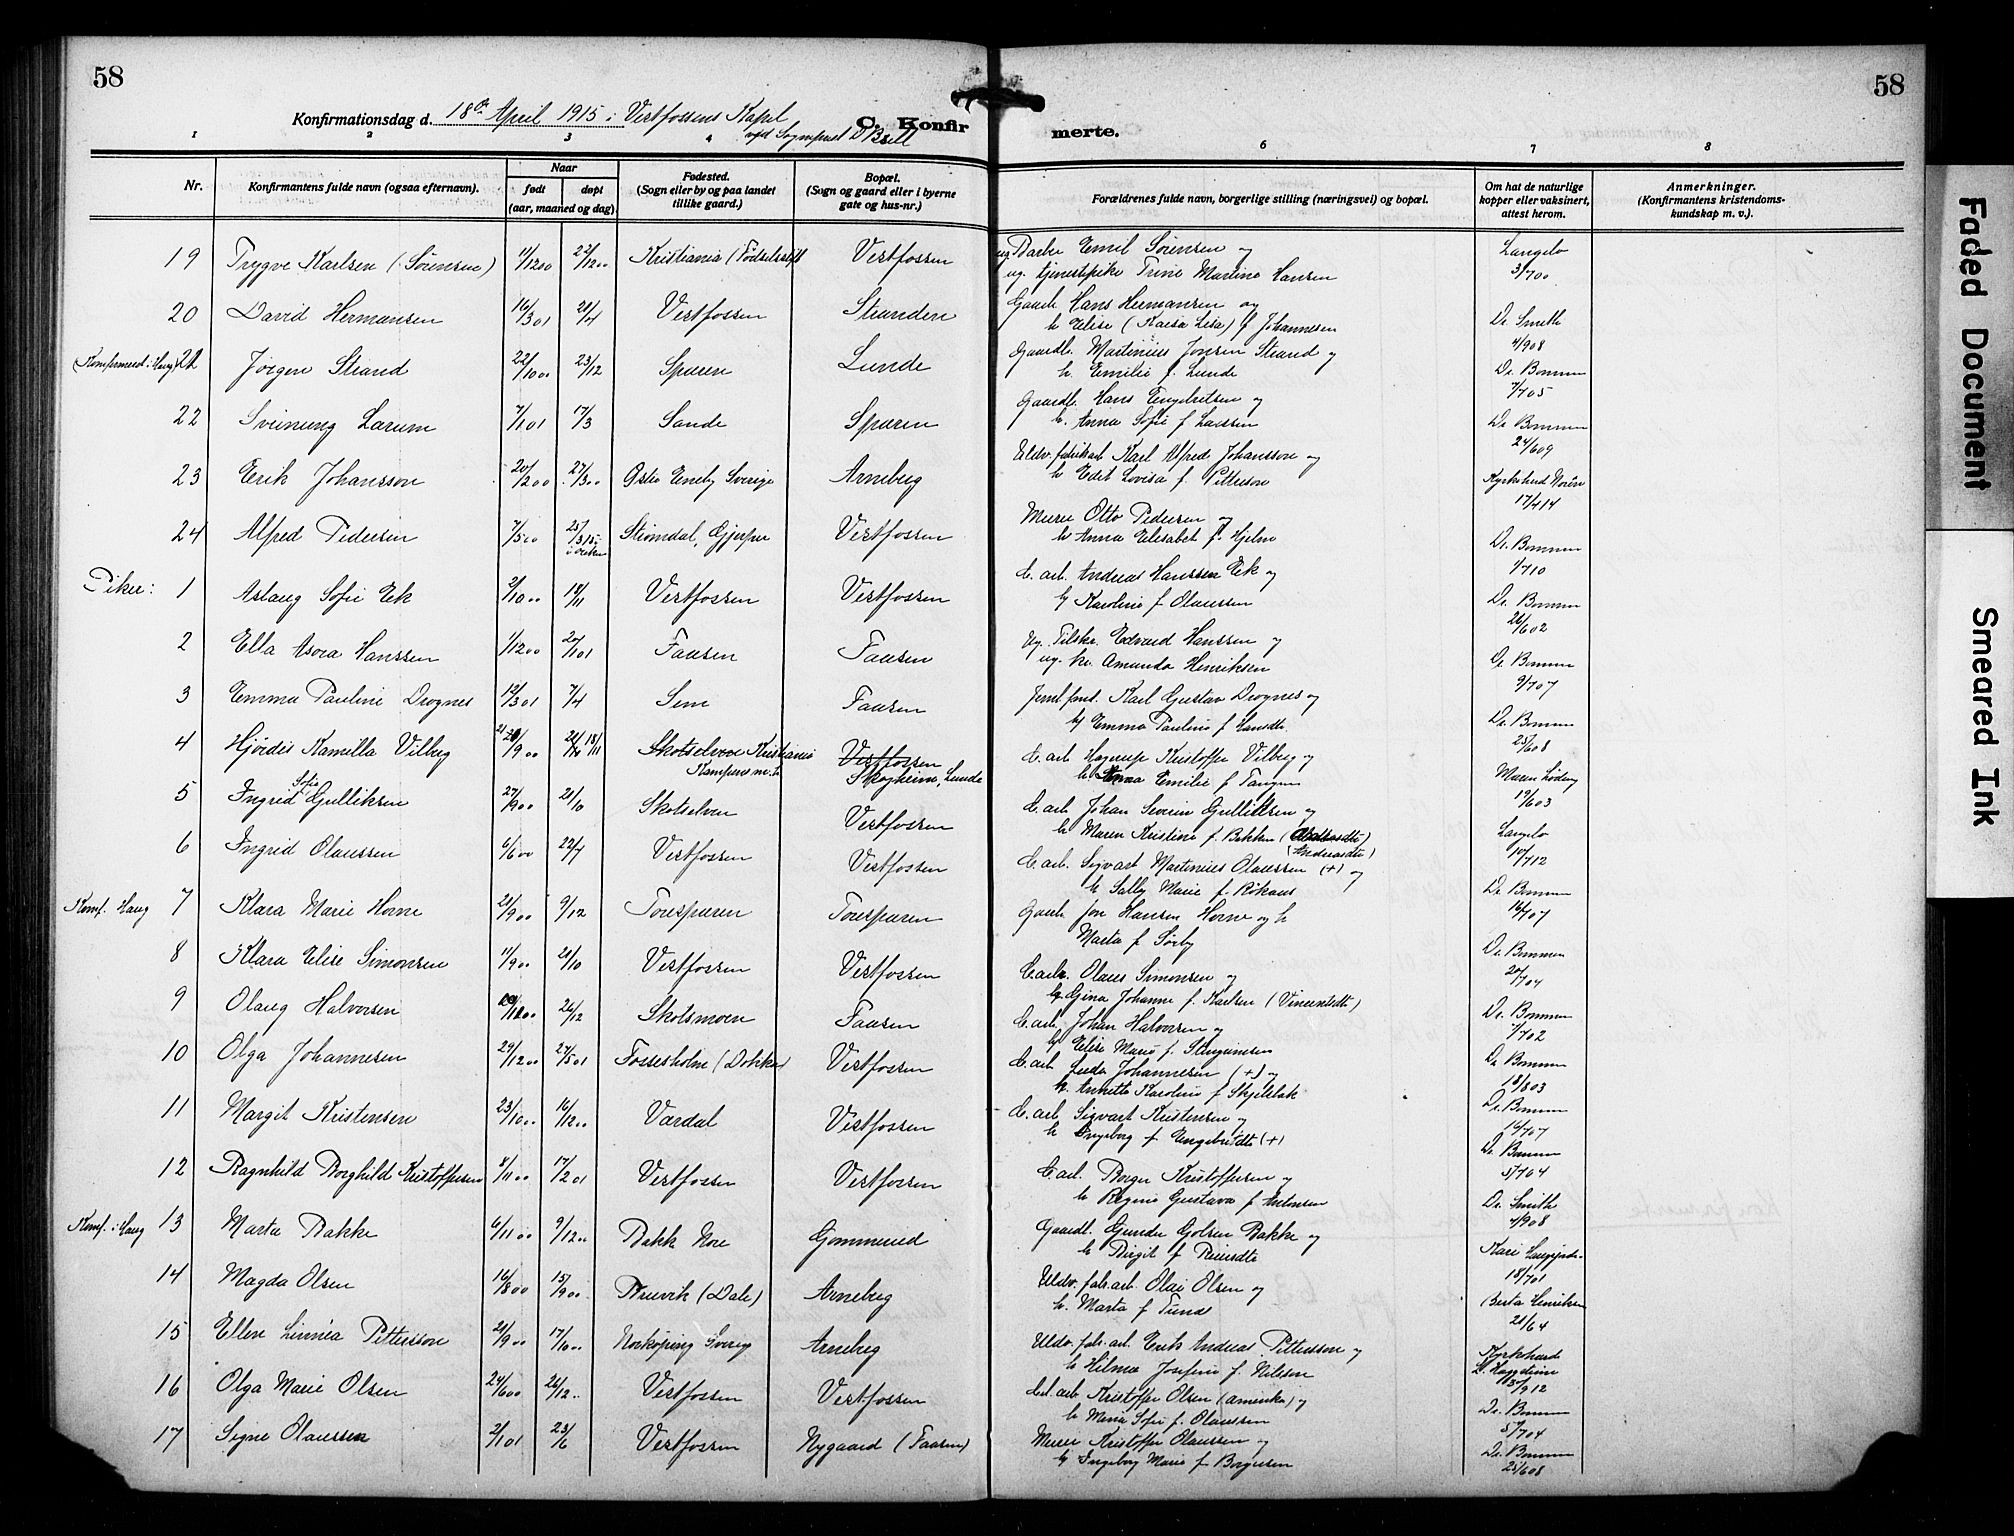 58
58
Konfirmationsdag d. 18de April 1915 i Vestfossens Kapel
ved Sogneprest
C. Konfirmerte.
1 2 3 4 6 7 8
Nr.
Konfirmantens fulde navn (ogsaa efternavn).
Naar
født
døpt
(aar, maaned og dag)
Fødested.
(Sogn eller by og paa landet
tillike gaard.)
Bopæl.
(Sogn og gaard eller i byerne
gate og hus-nr.)
Forældrenes fulde navn, borgerlige stilling (næringsvei) og bopæl.
Om hat de naturlige
kopper eller vaksinert,
attest herom.
Anmerkninger.
(Konfirmantens kristendoms-
kundskap m. v.).
19 Trygve Karlsen (Sørensen) 11/12 00 22/12 00 Kristiania Vestfossen Emil Sørensen og
ug. tjenestpike Trine Martine Hansen
Langelo
20 David Hermansen 16/3 01 21/4 Vestfossen Stranden Gaardb. Hans Hermansen og
h. Elise (Kaisa Lisa) f. Johannesen
Dr. Smith
4/9 08
21 Jørgen Strand 22/10 00 23/12 Sparen Lunde Gaardb. Martinius Jonsen Strand og
h. Emilie f. Lunde
Dr. Bommen
7/7 05
22 Sveinung Larum 7/1 01 17/3 Sande Sparen Gaardb. Hans Engebritsen og
h. Anna Sofie f. Larsen
Dr. Bommen
24/6 09
23 Erik Johansson 20/2 00 27/3 00 Østra Eneby Sverige Arneberg Uldv. fabrikarb. Karl Alfred Johansson og
h. Edit Lovisa f. Pitterson
17/4 14
24 Alfred Pedersen 7/5 00 25/3 15 Strømdal, Gjerpen Vestfossen Murer Otto Pedersen og
h. Anna Elisabet f. Hjelm
Dr. Bommen
1/7 10
Piker: 1 Aslaug Sofie Eek 2/10 00 18/11 Vestfossen Vestfossen C. arb. Andreas Hanssen Eek og
h. Karoline f. Olaussen
Dr. Bommen
26/6 02
2 Ella Asora Hanssen 1/12 00 20/1 01 Faasen Faasen Ug. Edvard Hanssen og
ug. kv. Amunda Henriksen
Dr. Bommen
9/7 07
3 Emma Pauline Drognes 12/3 01 7/4 Sem Faasen Karl Gustav Drognes og
h. Emma Pauline f. Larsdtr.
Dr. Bommen
25/6 08
4 Hjørdis Kamilla Vilberg 9 00 18/11 Skotselven Kristiania Vestfossen
Skogheim, Lunde
C. arb. Kristoffer Vilberg og
h. Anna Emilie f. Tangen
19/6 03
5 Ingrid Sofie Gulliksen 27/9 00 21/10 Skotselven Vestfossen C. arb. Johan Severin Gulliksen og
h. Maren Kristine f. Bekken (Andersdtr)
Langelo
10/7 12
6 Ingrid Olaussen 6/6 00 22/7 Vestfossen Vestfossen C. arb. Sigvart Martinius Olaussen (+) og
h. Sally Marie f. Røkaas
Dr. Bommen
16/7 07
Konf. Haug 7 Klara Marie Horne 21/9 00 9/12 Toresparen Toresparen Gaardb. Jon Hansen Horne og h
Marta f. Sørby
Dr. Bommen
20/7 04
8 Klara Elise Simonsen 11/9 00 21/10 Vestfossen Vestfossen C. arb. Olaus Simonsen og
h. Gina Johanne f. Karlsen (Vincentdtr)
Dr. Bommen
1/7 02
9 Olaug Halvorsen 26/12 Skotsmoen Faasen C. arb. Johan Halvorsen og
h. Elise Marie f. Stengrimsen
Dr. Bommen
18/8 03
10 Olga Johannesen 29/12 00 27/5 01 Fossesholm (Dokka) Vestfossen C. arb. Johannesen (+) og
h. Annette Karoline f. Skjelsbak
Dr. Bommen
16/7 07
11 Margit Kristensen 23/10 00 16/12 00 Vardal Vestfossen C. arb. Sigvart Kristensen og
h. Ingeborg f. Engebretdtr (+)
Dr. Bommen
5/7 04
12 Ragnhild Borghild Kristoffersen 8/11 00 17/2 01 Vestfossen Vestfossen C. arb. Borger Kristoffersen og
h. Regine Gustava f. Antonsen
Dr. Smith
4/9 08
Konf. i Haug 13 Marta Bakke 6/11 00 9/12 00 Bakk Nore Gommerud Gaardb. Gunder Golsen Bakke og
h. Birgit f. Reiersdtr
Kari
18/7 01
14 Magda Olsen 16/8 00 15/9 00 Bruvik (Dale) Arneberg Uldv. fab. arb. Olai Olsen og
h. Marta f. Tunes
Berta Henriksen
21/6 4
15 Ellen Linnéa Pettersson 21/9 00 17/10 00 Norkøping Sverig Arneberg Uldv. fab. arb. Erik Andreas Pettersson og
h. Hilma Josefine f. Nilsson
9 12
16 Olga Marie Olsen 24/6 00 26/12 00 Vestfossen Vestfossen Cel. arb. Kristoffer Olsen (Amerika) og
h. Maria Sofie f. Olaussen
Dr. Bommen
5/7 04
17 Signe Olaussen 2/1 01 23/6 Vestfossen Nygaard (Faasen) Murer Kristoffer Olaussen og
h. Ingeborg Marie f. Borgersen
Dr. Bommen
25/6 08
Faded Document
Smeared Ink